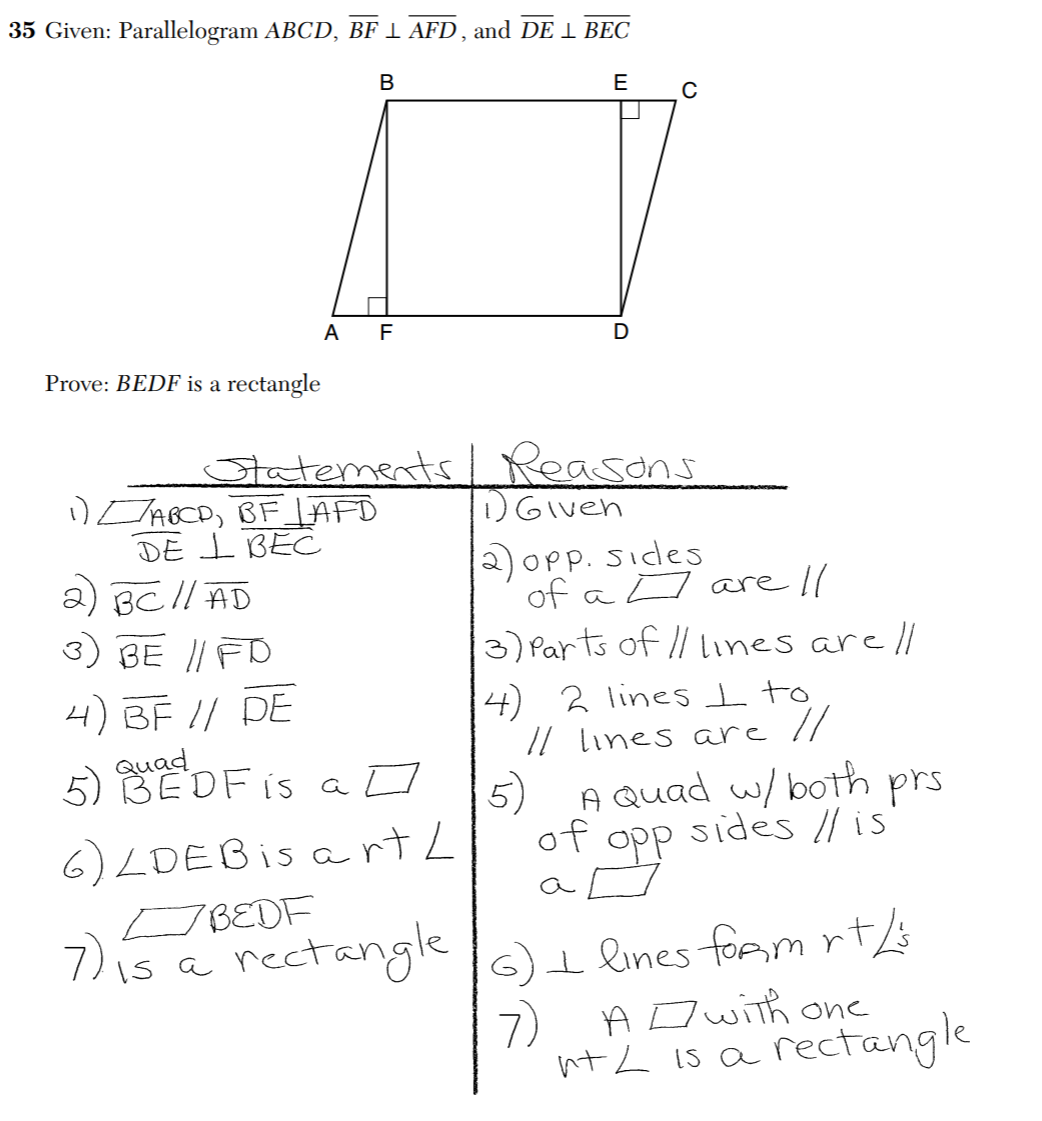 35 Given: Parallelogram ABCD, B̅F̅ ⊥ A̅F̅D̅, and D̅E̅ ⊥ B̅E̅C̅
B E C
A F D
Prove: BEDF is a rectangle
Statements | Reasons
1) ▱ABCD, B̅F̅ ⊥ A̅F̅D̅
D̅E̅ ⊥ B̅E̅C̅
1) Given
2) B̅C̅ // A̅D̅
2) opp. sides
of a ▱ are //
3) B̅E̅ // F̅D̅
3) Parts of // lines are //
4) B̅F̅ // D̅E̅
4) 2 lines ⊥ to
// lines are //
5) Quad BEDF is a ▱
5) A Quad w/ both prs
of opp sides // is
a ▱
6) ∠DEB is a rt ∠
6) ⊥ lines form rt ∠'s
▱BEDF
7) is a rectangle
7) A ▱ with one
rt ∠ is a rectangle